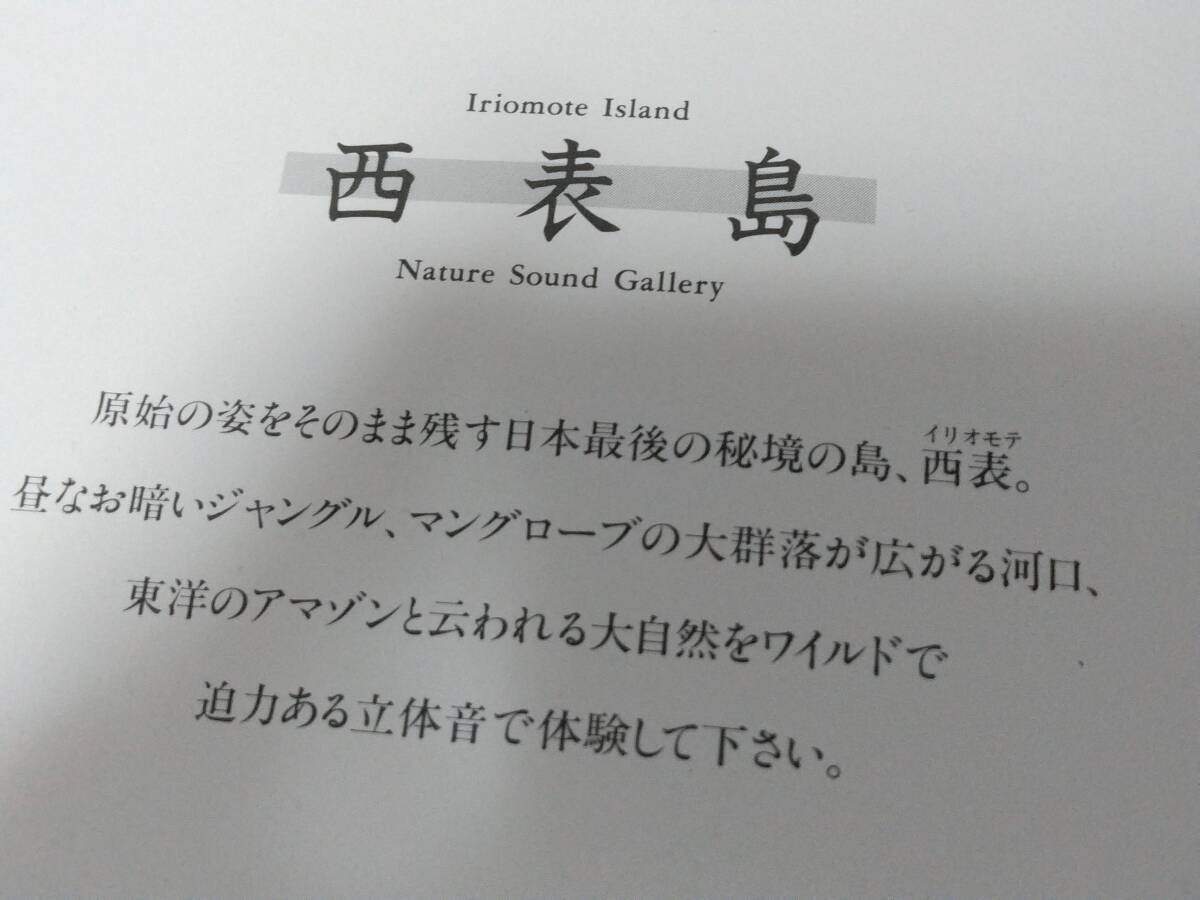 Iriomote Island
西表島
Nature Sound Gallery
原始の姿をそのまま残す日本最後の秘境の島、西表。
イリオモテ
昼なお暗いジャングル、マングローブの大群落が広がる河口、
東洋のアマゾンと云われる大自然をワイルドで
迫力ある立体音で体験して下さい。